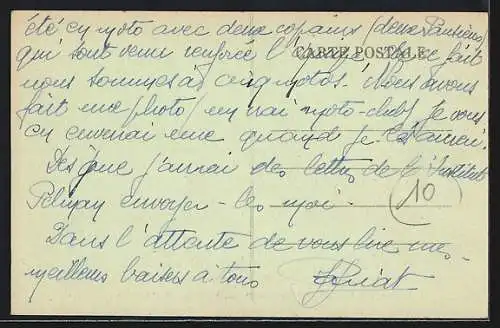 été en moto avec deux copains (deux Parisiens)
qui sont venu renforcé l'équipe. De ce fait
CARTE POSTALE
nous sommes à cinq motos. Nous avons
fait une photo, en vrai moto-club. Je vous
en enverrai une quand je l'aurai.
Dès que j'aurai des lettres de l'Institut
envoyer - les moi.
Dans l'attente de vous lire mes
meilleurs baisers à tous
10